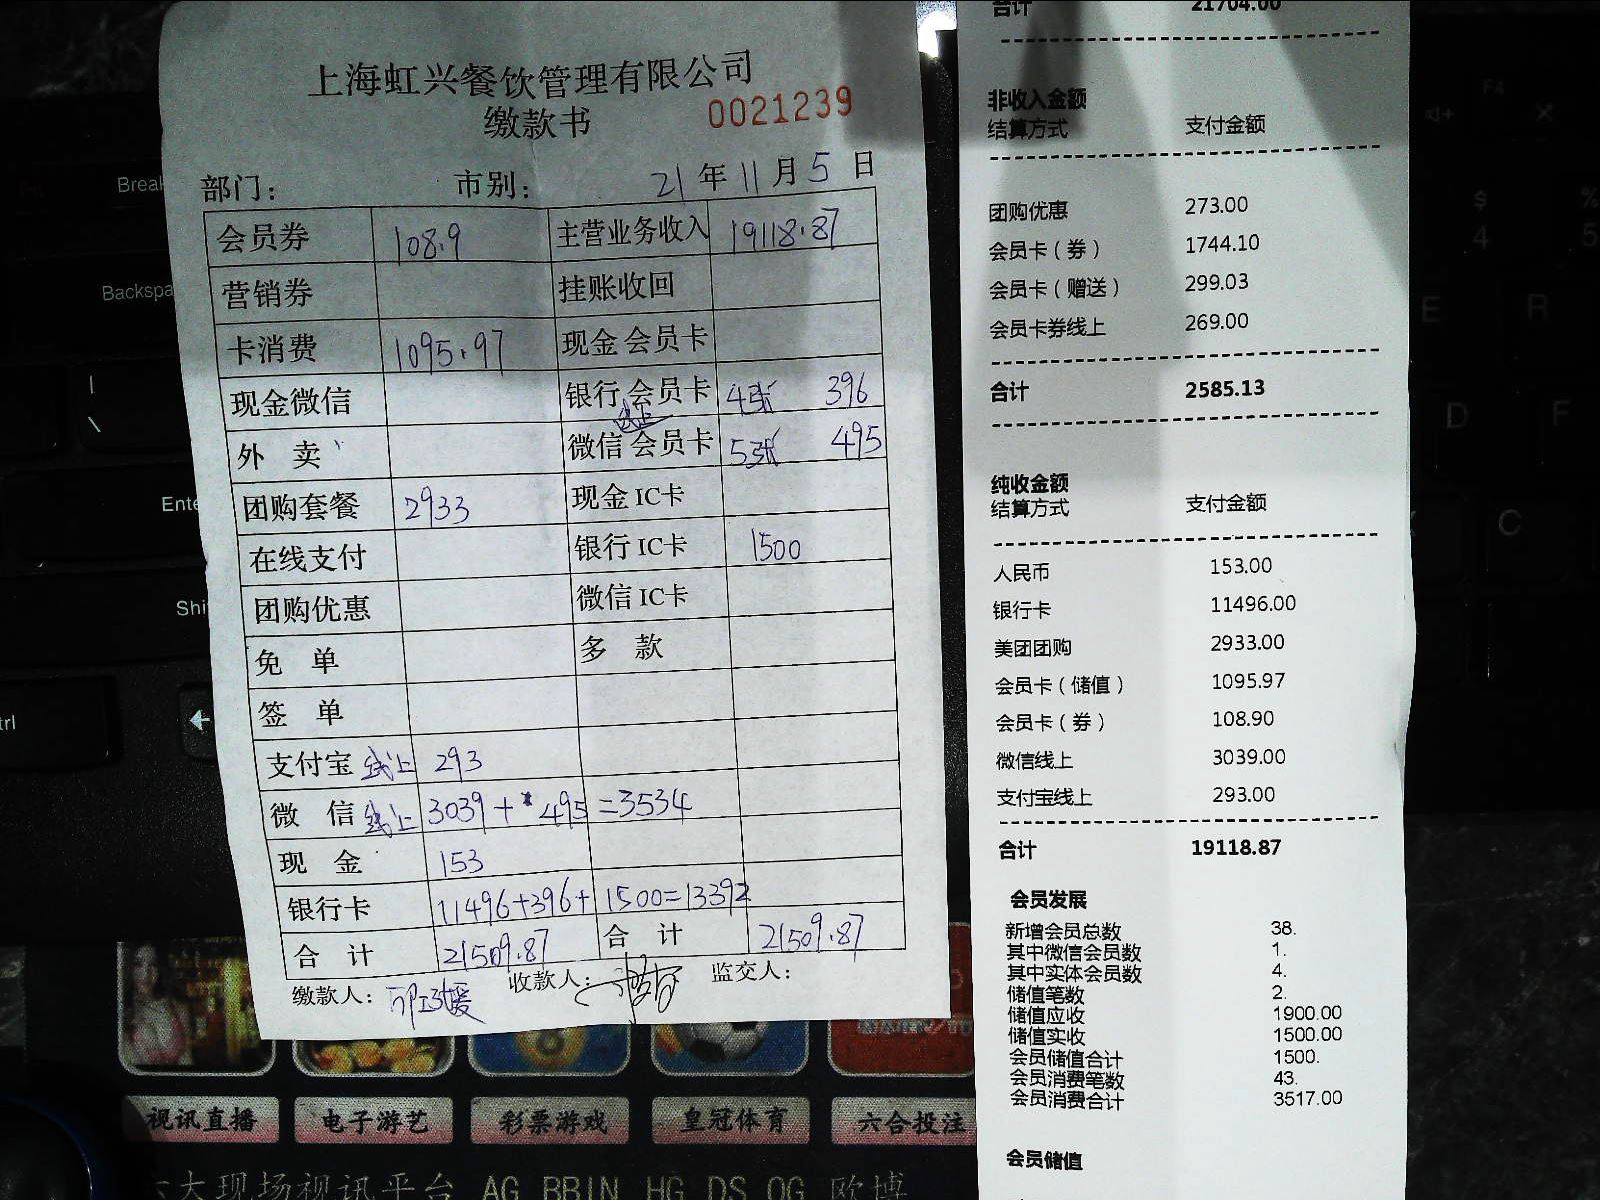 上海虹兴餐饮管理有限公司
缴款书
0021239
部门: 市别: 21年11月5日
会员券 108.9 主营业务收入 19118.87
营销券 挂账收回
卡消费 1095.97 现金会员卡
现金微信 银行会员卡 4张 396
线上
外 卖 微信会员卡 5张 495
团购套餐 2933 现金IC卡
在线支付 银行IC卡 1500
团购优惠 微信IC卡
免 单 多 款
签 单
支付宝 线上 293
微 信 线上 3039+495=3534
现 金 153
银行卡 11496+396+1500=13392
合 计 21509.87 合 计 21509.87
缴款人: 收款人: 监交人:
合计 21704.00
非收入金额
结算方式 支付金额
团购优惠 273.00
会员卡(券) 1744.10
会员卡(赠送) 299.03
会员卡券线上 269.00
合计 2585.13
纯收金额
结算方式 支付金额
人民币 153.00
银行卡 11496.00
美团团购 2933.00
会员卡(储值) 1095.97
会员卡(券) 108.90
微信线上 3039.00
支付宝线上 293.00
合计 19118.87
会员发展
新增会员总数 38.
其中微信会员数 1.
其中实体会员数 4.
储值笔数 2.
储值应收 1900.00
储值实收 1500.00
会员储值合计 1500.
会员消费笔数 43.
会员消费合计 3517.00
会员储值
Backspa
Ente
Shi
F4
$
4
%
5
E
R
D
F
C
视讯直播 电子游艺 彩票游戏 皇冠体育 六合投注
大现场视讯平台 AG BBIN HG DS OG 欧博